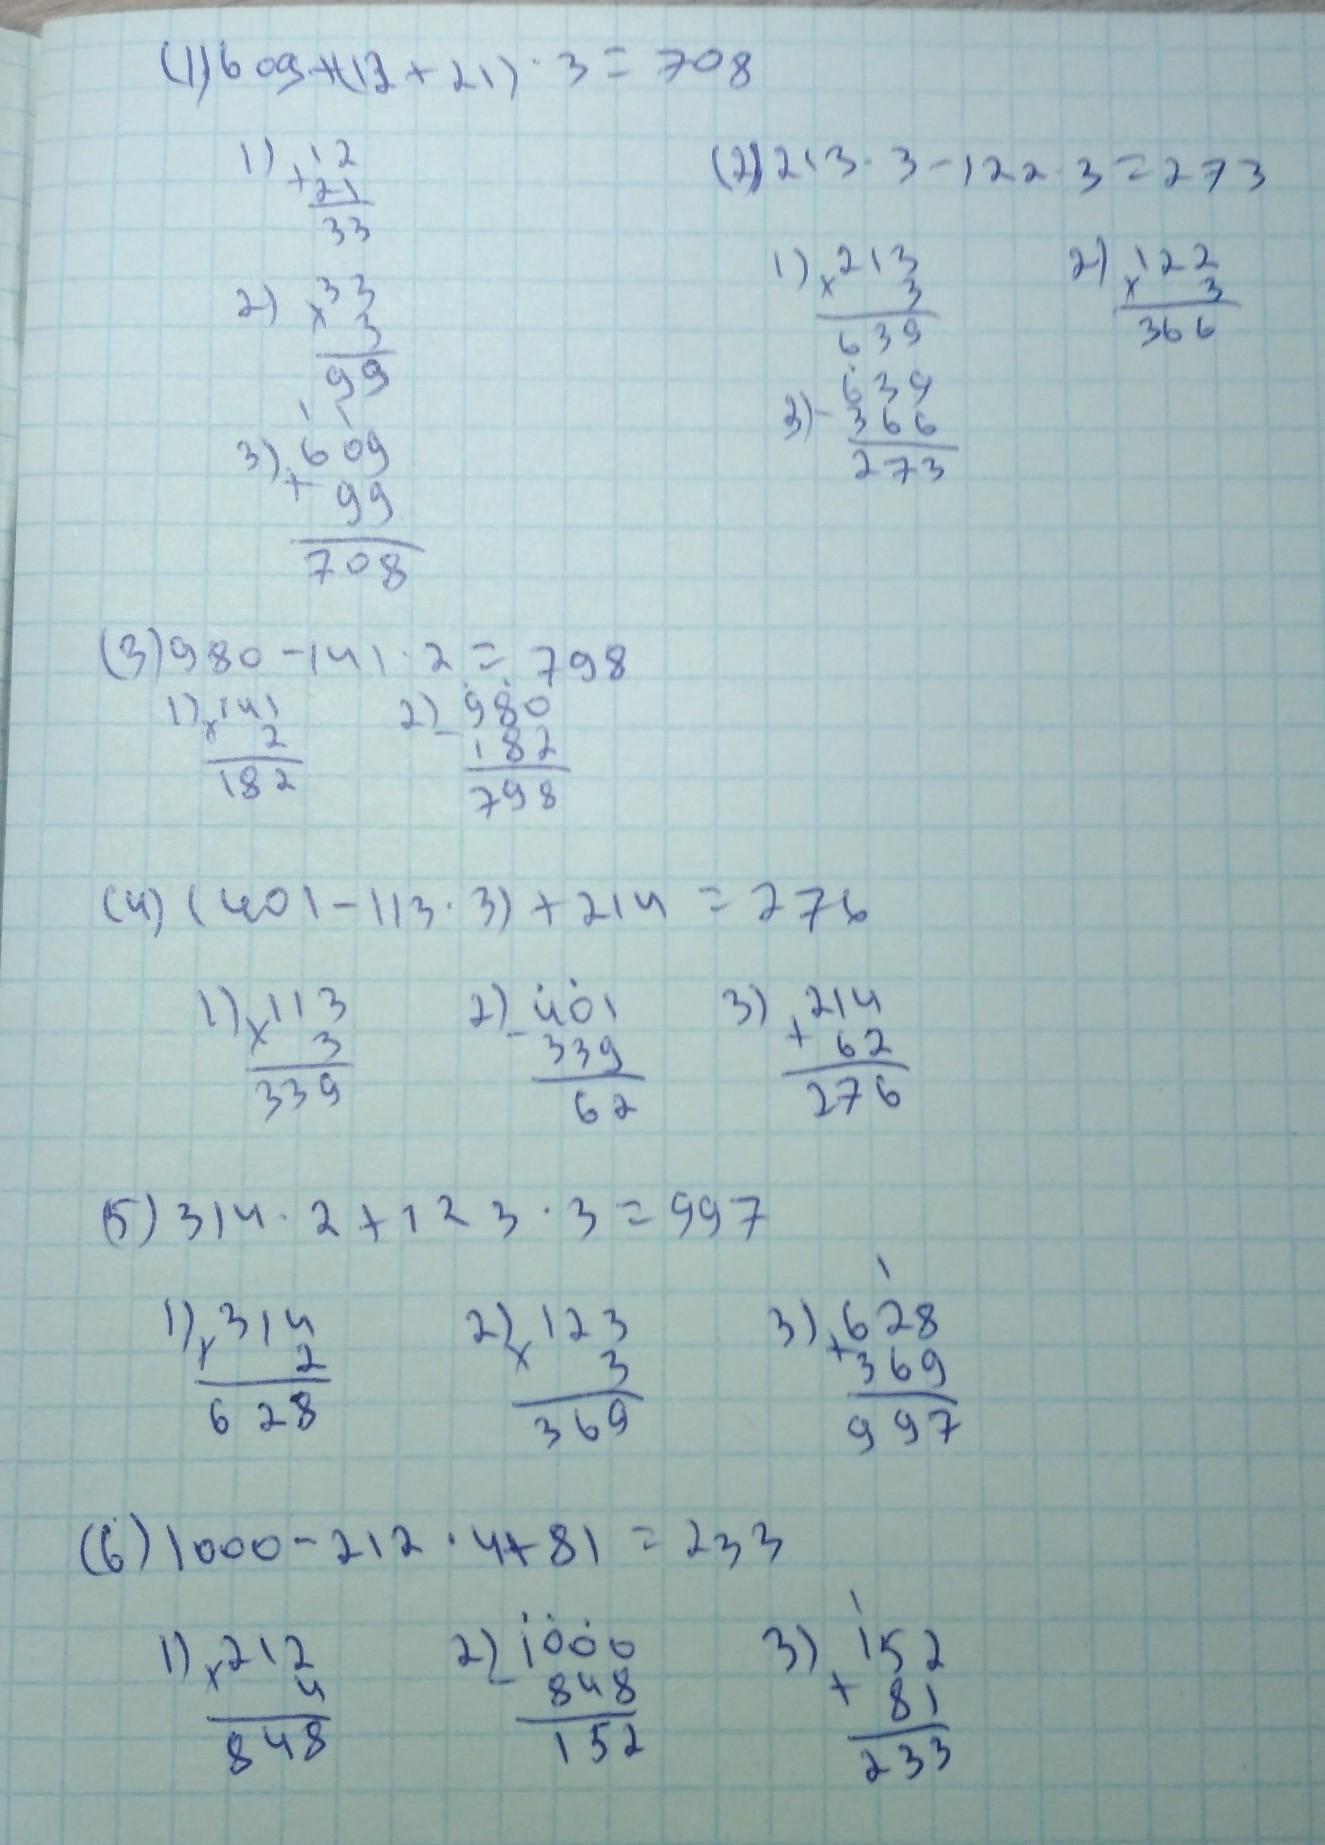 (1) 609+(12+21)·3=708
1) +12
21
33
2) ×33
3
99
1 1
3) +609
99
708
(2) 213·3-122·3=273
1) ×213
3
639
2) ×122
3
366
3) -639
366
273
(3) 980-141·2=798
1) ×141
2
182
2) -980
182
798
(4) (401-113·3)+214=276
1) ×113
3
339
2) -401
339
62
3) +214
62
276
(5) 314·2+123·3=997
1) ×314
2
628
2) ×123
3
369
1
3) +628
369
997
(6) 1000-212·4+81=233
1) ×212
4
848
2) -1000
848
152
1
3) +152
81
233